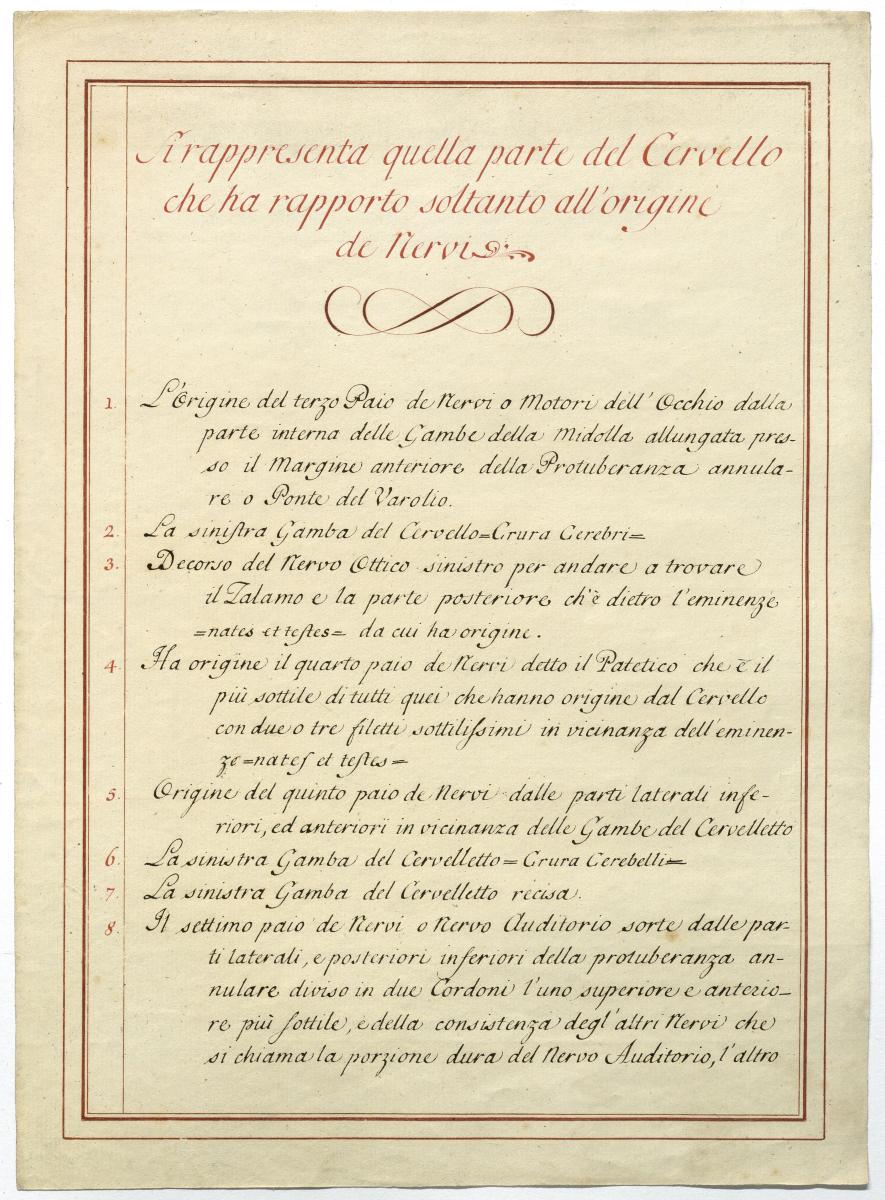 Si rappresenta quella parte del Cervello
che ha rapporto soltanto all'origine
de Nervi
1. L'Origine del terzo Paio de Nervi o Motori dell' Occhio dalla
parte interna delle Gambe della Midolla allungata pres-
so il Margine anteriore della Protuberanza annula-
re o Ponte del Varolio.
2. La siniſtra Gamba del Cervello=Crura Cerebri=
3. Decorso del Nervo Ottico sinistro per andare a trovare
il Talamo e la parte posteriore ch'è dietro l'eminenze
=nates et teſtes= da cui ha origine.
4. Ha origine il quarto paio de Nervi detto il Patetico che è il
più sottile di tutti quei che hanno origine dal Cervello
con due o tre filetti sottiliſsimi in vicinanza dell'eminen-
ze=nateſ et teſtes=
5. Origine del quinto paio de Nervi dalle parti laterali infe-
riori, ed anteriori in vicinanza delle Gambe del Cervelletto
6. La sinistra Gamba del Cervelletto=Crura Cerebelli=
7. La sinistra Gamba del Cervelletto recisa.
8. Il settimo paio de Nervi o Nervo Auditorio sorte dalle par-
ti laterali, e posteriori inferiori della protuberanza an-
nulare diviso in due Cordoni l'uno superiore e anterio-
re più ſottile, e della consistenza degl'altri Nervi che
si chiama la porzione dura del Nervo Auditorio, l'altro